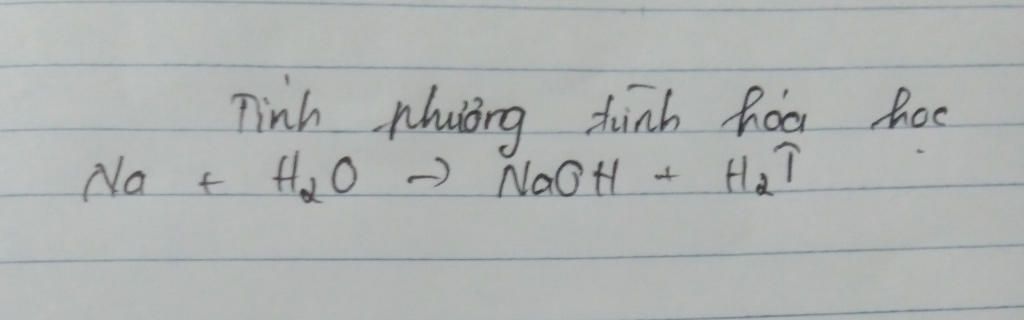 Tính phương trình hóa học
Na + H₂O → NaOH + H₂↑